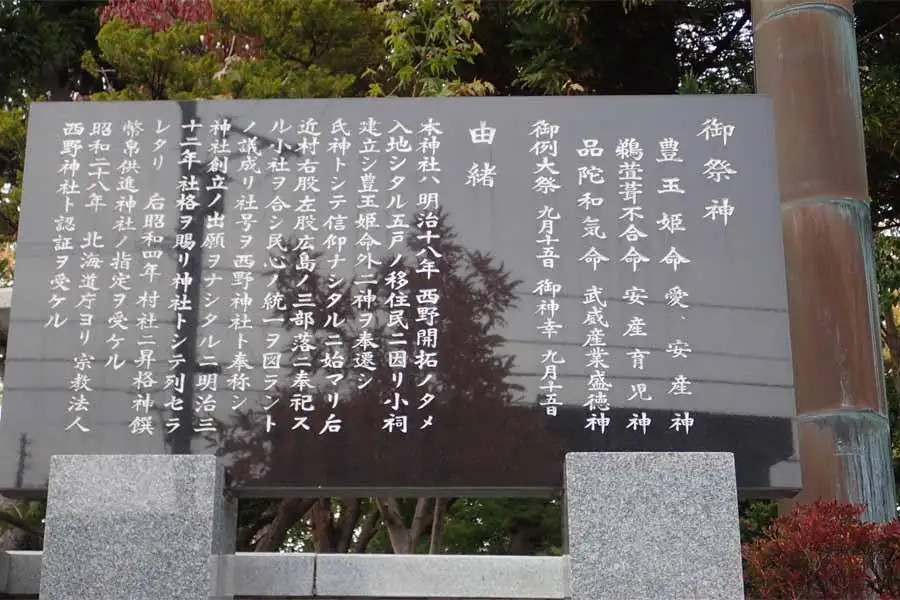 御祭神
豊玉姫命 愛、安産神
鵜萱葺不合命 安産育児神
品陀和気命 武威産業盛徳神
御例大祭 九月十五日 御神幸 九月十五日
由緒
本神社ハ明治十八年 西野開拓ノタメ
入地シタル五戸ノ移住民ニ因リ小祠
建立シ豊玉姫命外二神ヲ奉遷シ
氏神トシテ信仰ナシタルニ始マリ后
近村右股左股広島ノ三部落ニ奉祀ス
ル小社ヲ合シ民心ノ統一ヲ図ラント
ノ議成リ社号ヲ西野神社ト奉称シ
神社創立ノ出願ヲナシタルニ明治三
十二年社格ヲ賜リ神社トシテ列セラ
レタリ 后昭和四年村社ニ昇格神饌
幣帛供進神社ノ指定ヲ受ケル
昭和二十八年 北海道庁ヨリ宗教法人
西野神社ト認証ヲ受ケル